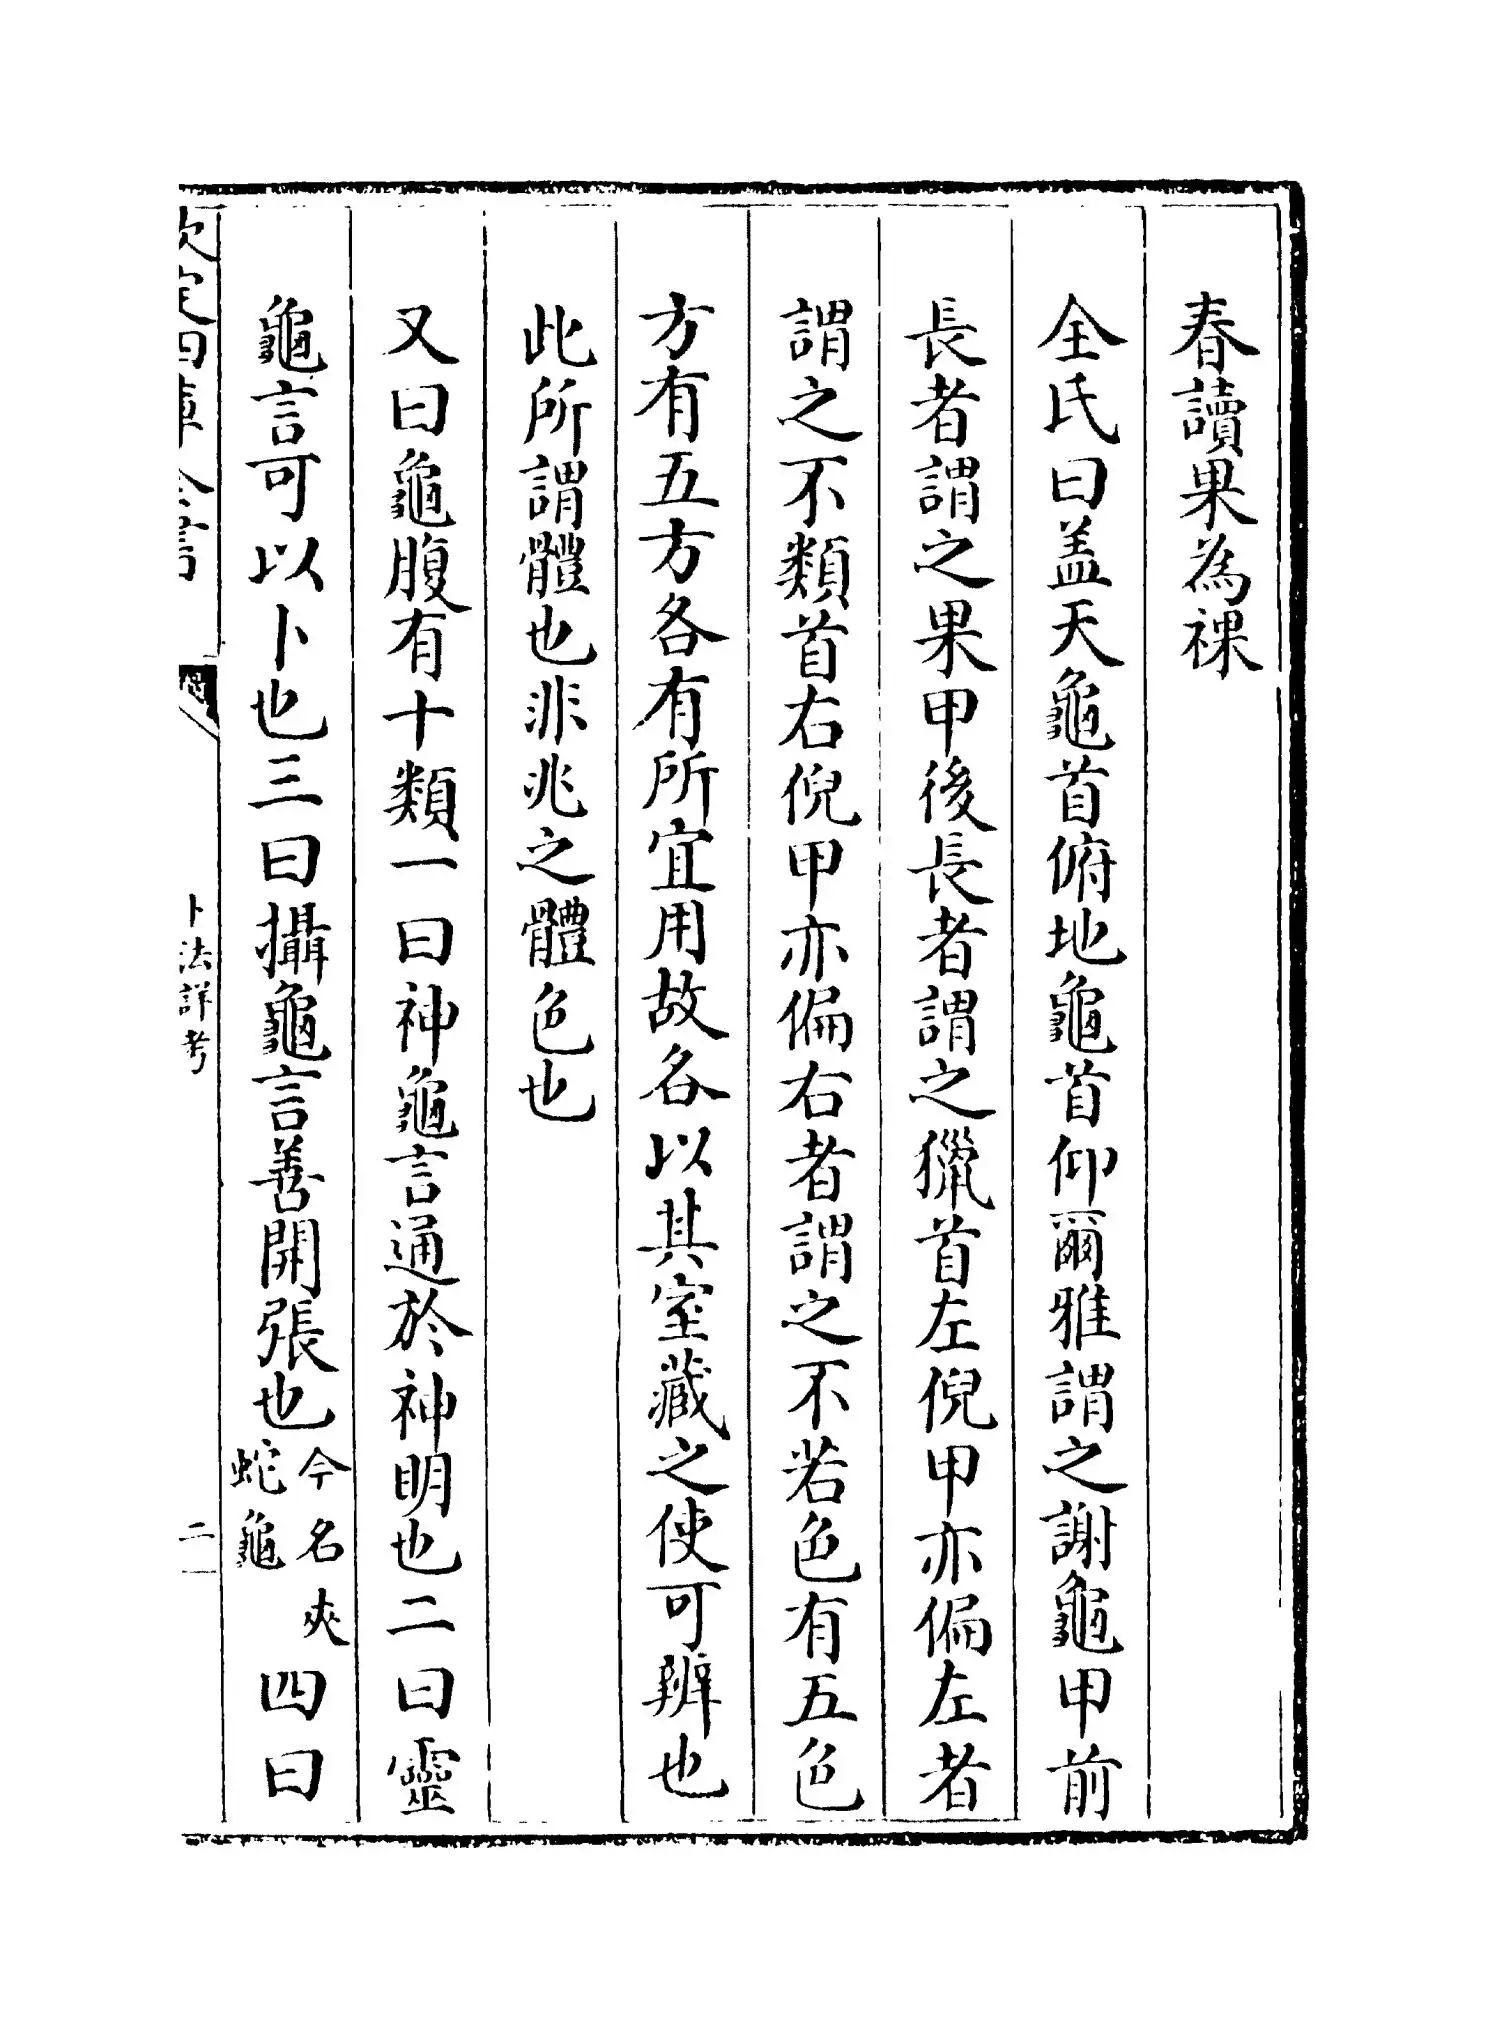 春讀果為祼
全氏曰盖天龜首俯地龜首仰爾雅謂之謝龜甲前
長者謂之果甲後長者謂之獵首左倪甲亦偏左者
謂之不類首右倪甲亦偏右者謂之不若色有五色
方有五方各有所宜用故各以其室藏之使可辨也
此所謂體也非兆之體色也
又曰龜腹有十類一曰神龜言通於神明也二曰靈
龜言可以卜也三曰攝龜言善開張也今名夾蛇龜四曰
欽定四庫全書
卜法詳考
二